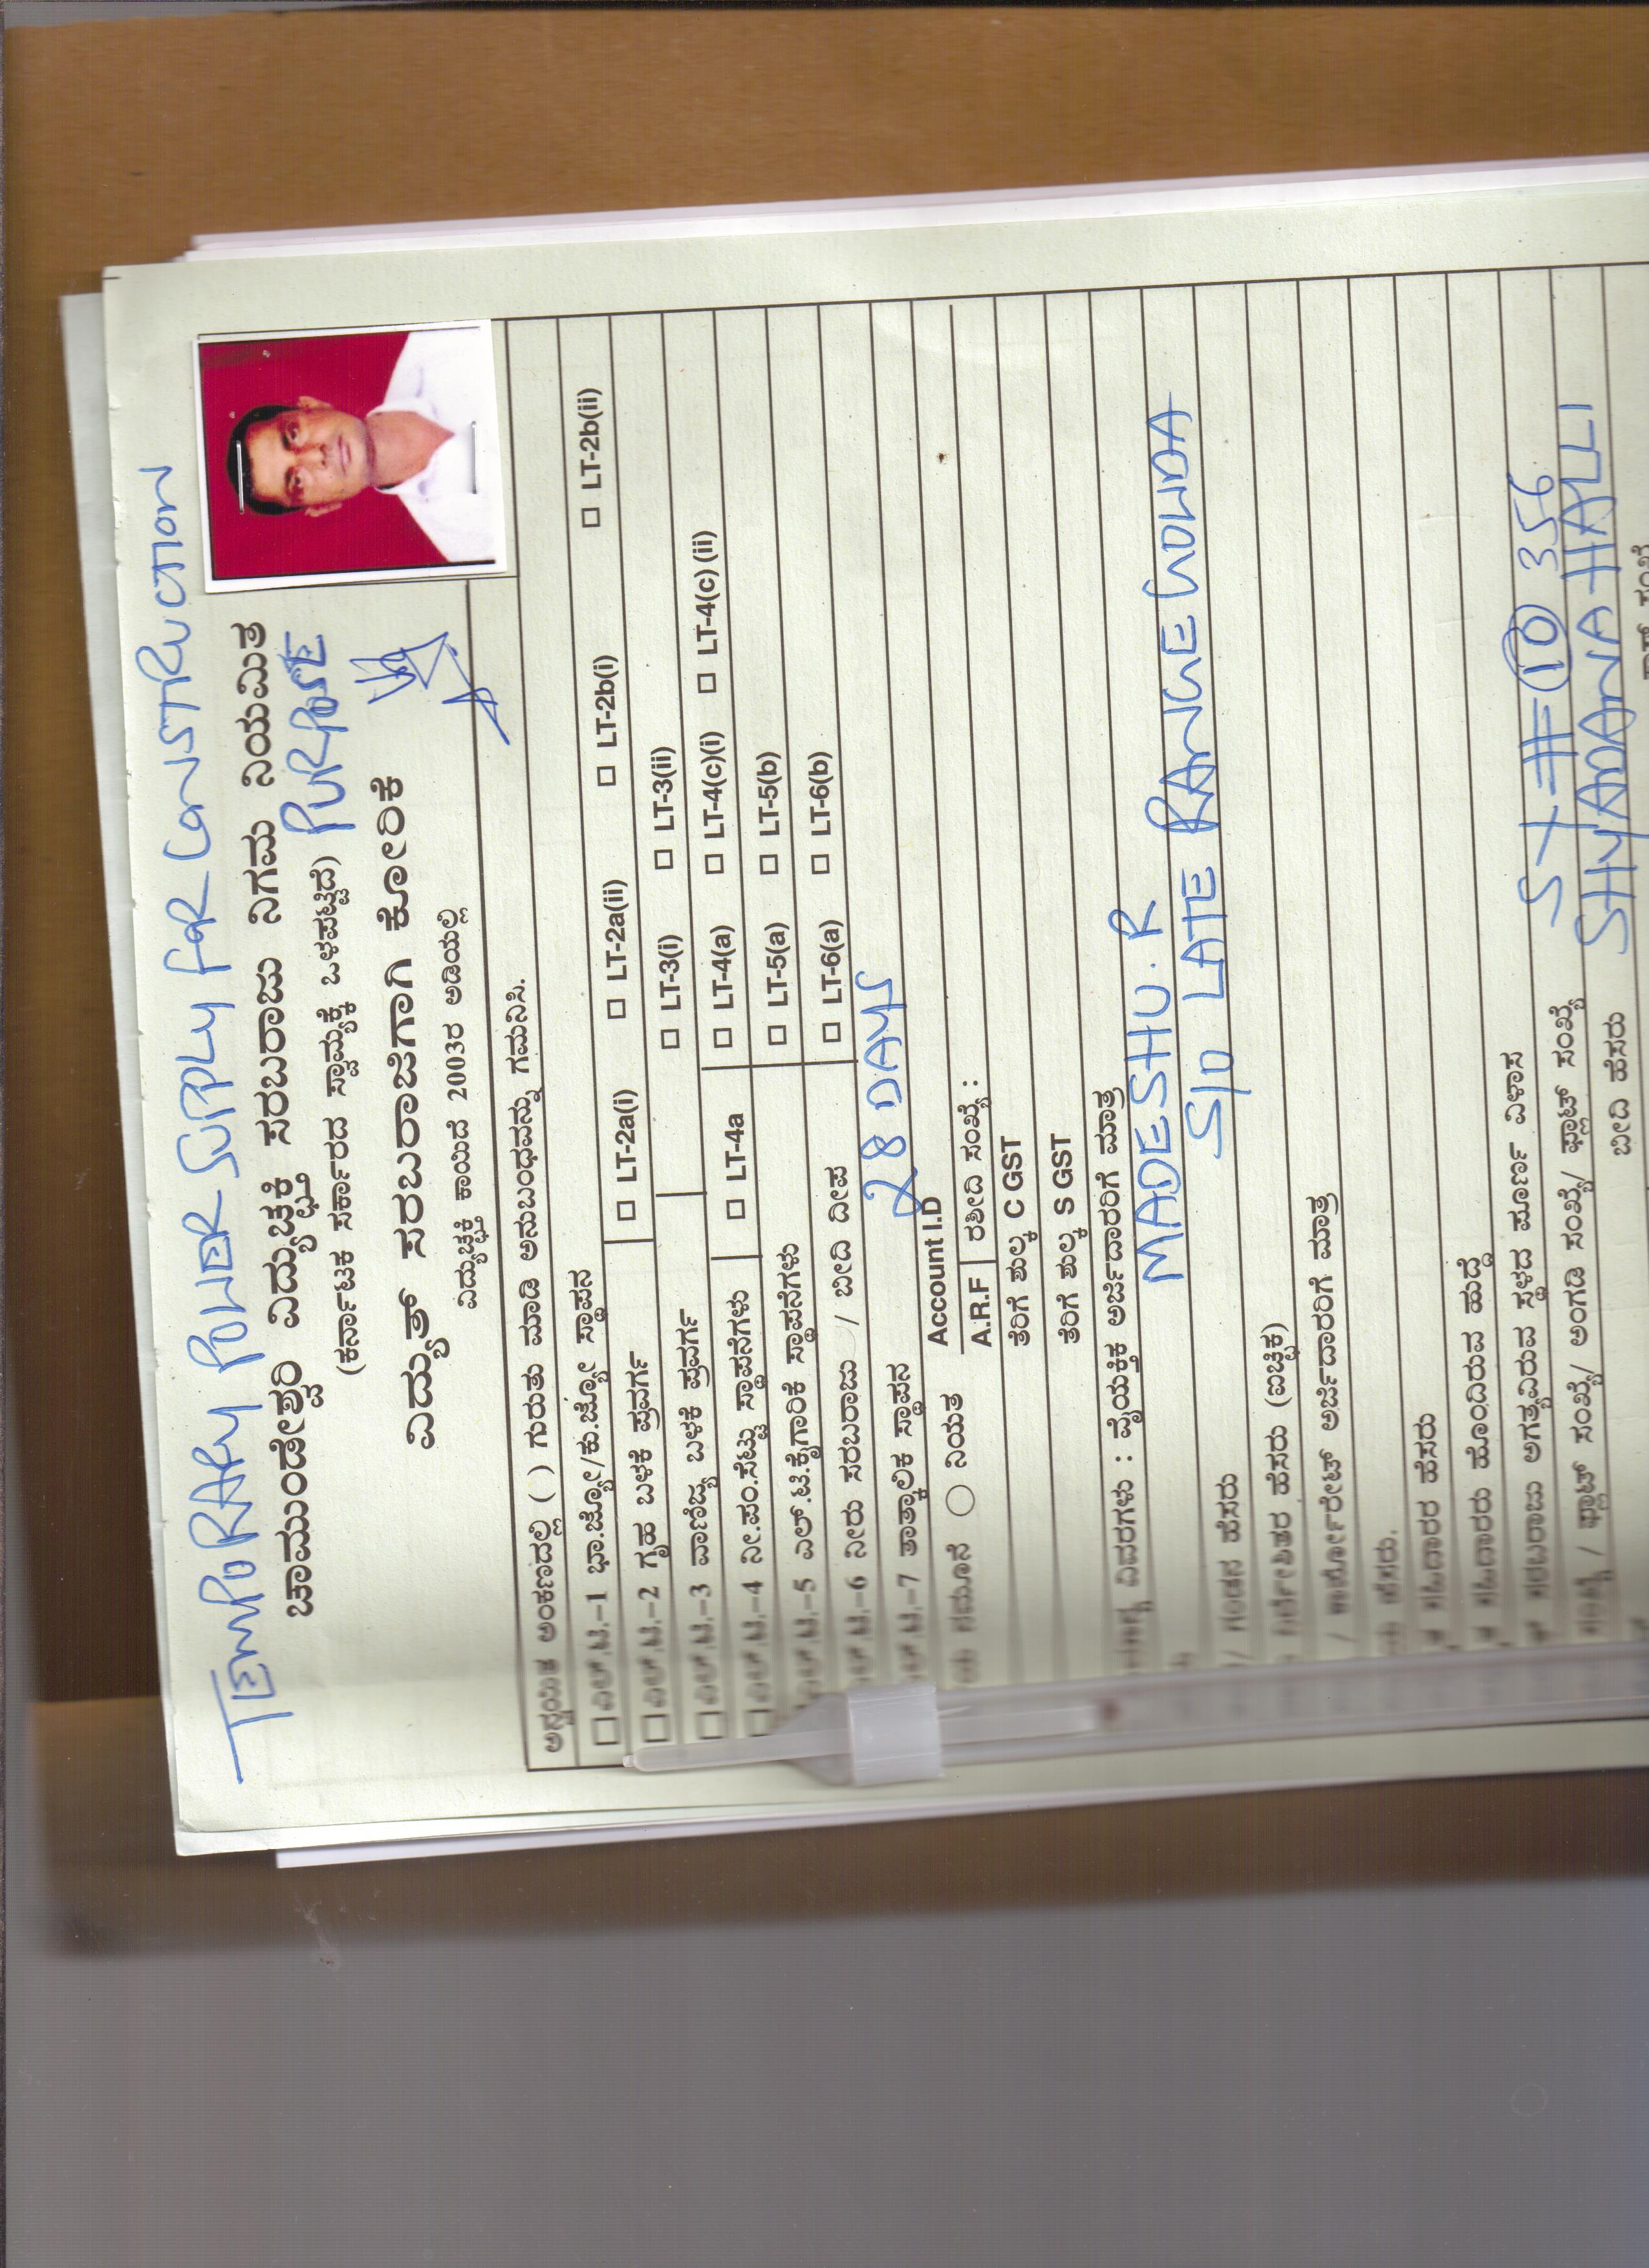 TEMPORARY POWER SUPPLY FOR CONSTRUCTION
ಚಾಮುಂಡೇಶ್ವರಿ ವಿದ್ಯುಚ್ಛಕ್ತಿ ಸರಬರಾಜು ನಿಗಮ ನಿಯಮಿತ
(ಕರ್ನಾಟಕ ಸರ್ಕಾರದ ಸ್ವಾಮ್ಯಕ್ಕೆ ಒಳಪಟ್ಟಿದೆ) PURPOSE
ವಿದ್ಯುತ್ ಸರಬರಾಜಿಗಾಗಿ ಕೋರಿಕೆ
ವಿದ್ಯುಚ್ಛಕ್ತಿ ಕಾಯಿದೆ 2003ರ ಅಡಿಯಲ್ಲಿ
ಅಂಕಣದಲ್ಲಿ ( ) ಗುರುತು ಮಾಡಿ ಅನುಬಂಧವನ್ನು ಗಮನಿಸಿ.
□ ಎಲ್.ಟಿ.–1 ಭಾ.ಜ್ಯೋ/ಕು.ಜ್ಯೋ ಸ್ಥಾಪನ
□ ಎಲ್.ಟಿ.–2 ಗೃಹ ಬಳಕೆ ಪ್ರವರ್ಗ □ LT-2a(i) □ LT-2a(ii) □ LT-2b(i) □ LT-2b(ii)
□ ಎಲ್.ಟಿ.–3 ವಾಣಿಜ್ಯ ಬಳಕೆ ಪ್ರವರ್ಗ □ LT-3(i) □ LT-3(ii)
□ ಎಲ್.ಟಿ.–4 ನೀ.ಪಂ.ಸೆಟ್ಟು ಸ್ಥಾಪನೆಗಳು □ LT-4a □ LT-4(a) □ LT-4(c)(i) □ LT-4(c) (ii)
ಎಲ್.ಟಿ.–5 ಎಲ್.ಟಿ.ಕೈಗಾರಿಕೆ ಸ್ಥಾಪನೆಗಳು □ LT-5(a) □ LT-5(b)
ಎಲ್.ಟಿ.–6 ನೀರು ಸರಬರಾಜು / ಬೀದಿ ದೀಪ □ LT-6(a) □ LT-6(b)
ಎಲ್.ಟಿ.–7 ತಾತ್ಕಾಲಿಕ ಸ್ಥಾಪನ 28 DAYS
ನಮೂನೆ ○ ನಿಯತ Account I.D
A.R.F ರಶೀದಿ ಸಂಖ್ಯೆ :
ತೆರಿಗೆ ಶುಲ್ಕ C GST
ತೆರಿಗೆ ಶುಲ್ಕ S GST
ವಿವರಗಳು : ವೈಯಕ್ತಿಕ ಅರ್ಜಿದಾರರಿಗೆ ಮಾತ್ರ
MADESHU. R
/ ಗಂಡನ ಹೆಸರು S/O LATE RANGEGOWDA
ಹೆಸರು (ಐಚ್ಛಿಕ)
/ ಕಾರ್ಪೋರೇಟ್ ಅರ್ಜಿದಾರರಿಗೆ ಮಾತ್ರ
ಹೆಸರು.
ಸಹಿದಾರರ ಹೆಸರು
ಸಹಿದಾರರು ಹೊಂದಿರುವ ಹುದ್ದೆ
ಸರಬರಾಜು ಅಗತ್ಯವಿರುವ ಸ್ಥಳದ ಪೂರ್ಣ ವಿಳಾಸ
/ ಫ್ಲಾಟ್ ಸಂಖ್ಯೆ/ ಅಂಗಡಿ ಸಂಖ್ಯೆ/ ಪ್ಲಾಟ್ ಸಂಖ್ಯೆ 10 356
ಬೀದಿ ಹೆಸರು SHYADANAHALLI